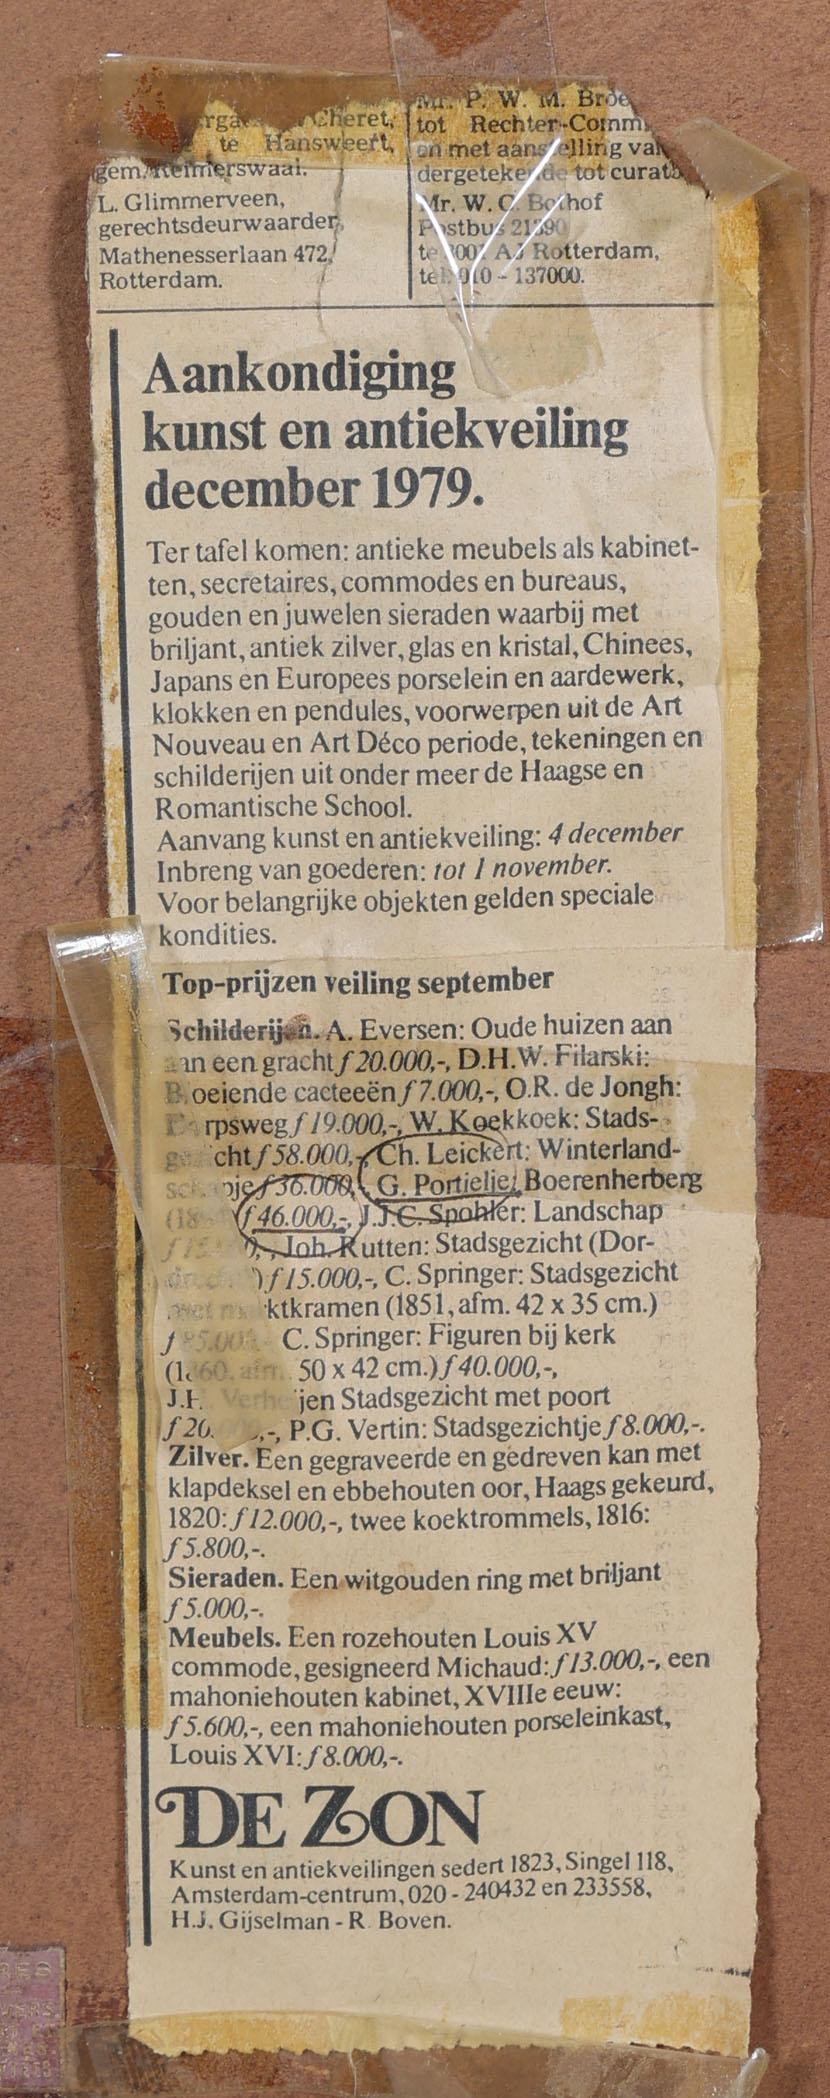 Cheret,
te Hansweert,
gem. Reimerswaal.
L. Glimmerveen,
gerechtsdeurwaarder,
Mathenesserlaan 472,
Rotterdam.
Mr. P. W. M. Broe
tot Rechter-Comm
en met aanstelling van
dergetekende tot curato
Mr. W. C. Bothof
Postbus 21390
te 3001 AJ Rotterdam,
tel. 010 - 137000.
Aankondiging
kunst en antiekveiling
december 1979.
Ter tafel komen: antieke meubels als kabinet-
ten, secretaires, commodes en bureaus,
gouden en juwelen sieraden waarbij met
briljant, antiek zilver, glas en kristal, Chinees,
Japans en Europees porselein en aardewerk,
klokken en pendules, voorwerpen uit de Art
Nouveau en Art Déco periode, tekeningen en
schilderijen uit onder meer de Haagse en
Romantische School.
Aanvang kunst en antiekveiling: 4 december
Inbreng van goederen: tot 1 november.
Voor belangrijke objekten gelden speciale
kondities.
Top-prijzen veiling september
Schilderijen. A. Eversen: Oude huizen aan
aan een gracht f 20.000,-, D.H.W. Filarski:
Bloeiende cacteeën f 7.000,-, O.R. de Jongh:
Dorpsweg f 19.000,-, W. Koekkoek: Stads-
gezicht f 58.000,-, Ch. Leickert: Winterland-
schapje f 36.000,-, G. Portielje: Boerenherberg
f 46.000,-, J.J.C. Spohler: Landschap
Joh. Rutten: Stadsgezicht (Dor-
drecht) f 15.000,-, C. Springer: Stadsgezicht
met marktkramen (1851, afm. 42 x 35 cm.)
f 85.000,- C. Springer: Figuren bij kerk
(1860, afm. 50 x 42 cm.) f 40.000,-,
J.H. Verheijen Stadsgezicht met poort
f 20. ,-, P.G. Vertin: Stadsgezichtje f 8.000,-.
Zilver. Een gegraveerde en gedreven kan met
klapdeksel en ebbehouten oor, Haags gekeurd,
1820: f 12.000,-, twee koektrommels, 1816:
f 5.800,-.
Sieraden. Een witgouden ring met briljant
f 5.000,-.
Meubels. Een rozehouten Louis XV
commode, gesigneerd Michaud: f 13.000,-, een
mahoniehouten kabinet, XVIIIe eeuw:
f 5.600,-, een mahoniehouten porseleinkast,
Louis XVI: f 8.000,-.
DE ZON
Kunst en antiekveilingen sedert 1823, Singel 118,
Amsterdam-centrum, 020 - 240432 en 233558,
H.J. Gijselman - R. Boven.